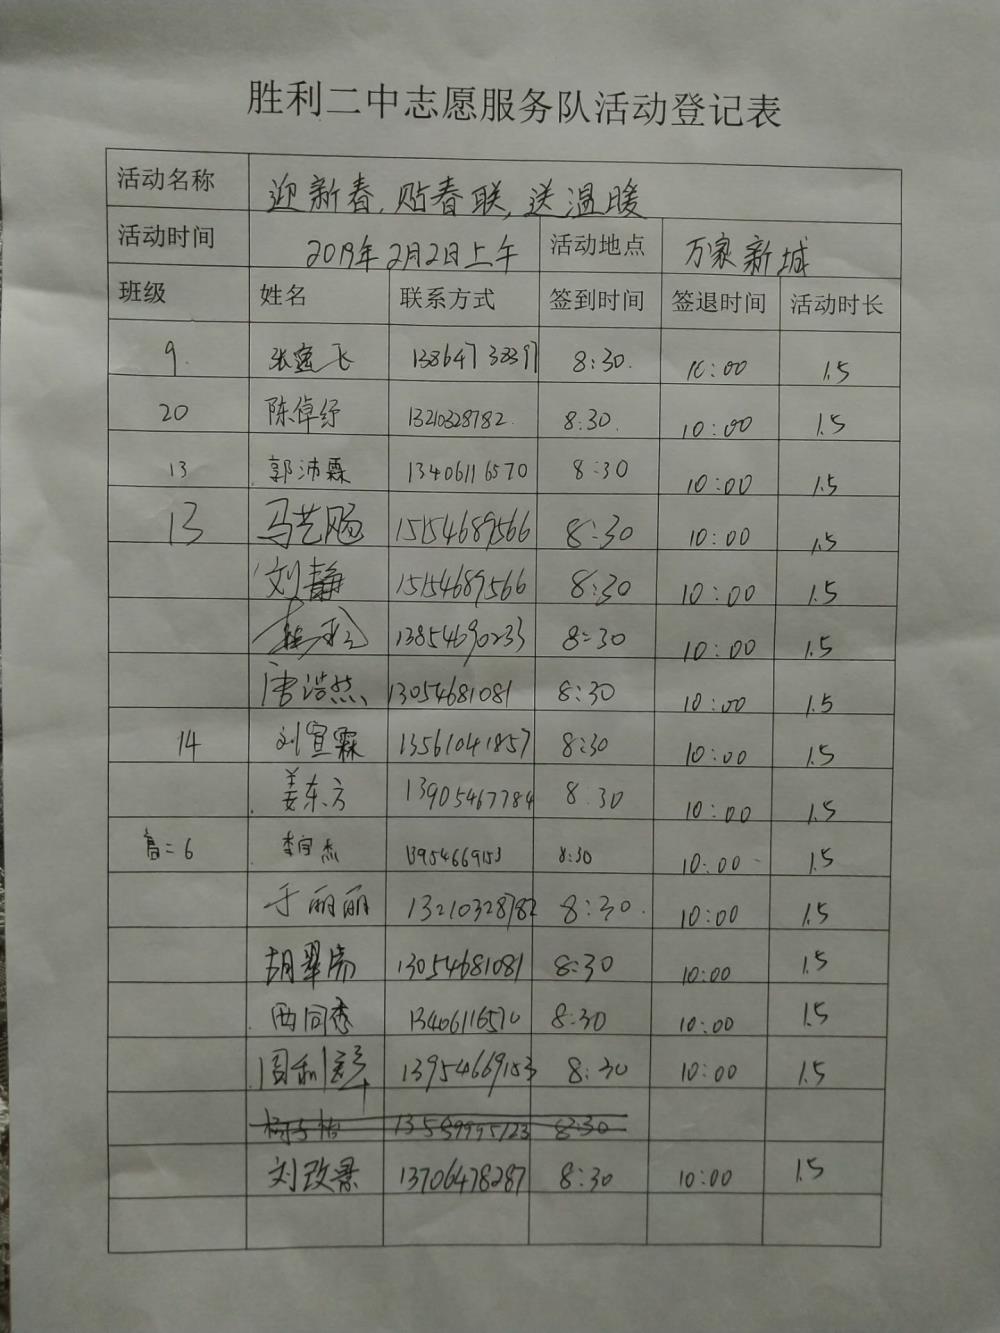 胜利二中志愿服务队活动登记表
活动名称 迎新春,贴春联,送温暖
活动时间 2019年2月2日上午 活动地点 万家新城
班级 姓名 联系方式 签到时间 签退时间 活动时长
9. 8:30. 10:00 1.5
20 陈倬纾 13210328782. 8:30. 10:00 1.5
13 郭沛霖 13406116570 8:30 10:00 1.5
13 马艺飏 15154689566 8:30 10:00 1.5
刘静 15154689566 8:30 10:00 1.5
13854690233 8:30 10:00 1.5
唐浩然 13054681081 8:30 10:00 1.5
14 刘宣霖 13561041857 8:30 10:00 1.5
姜东方 13905467784 8.30 10:00 1.5
高二6 李宇杰 13954669153 8:30 10:00 1.5
于丽丽 13210328782 8:30. 10:00 1.5
胡翠 13054681081 8:30 10:00 1.5
西同秀 13406116570 8:30 10:00 1.5
周利 13954669153 8:30 10:00 1.5
8:30
刘改景 13706478287 8:30 10:00 1.5